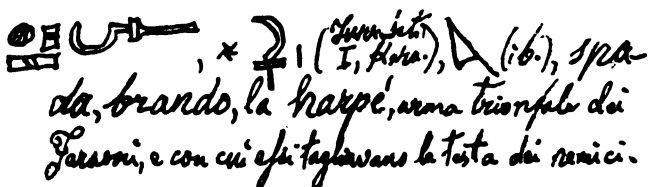 , * , (
I, ), (ib.), spa-
da, brando, la harpé, arma trionfale dei
Faraoni, e con cui essi tagliavano la testa dei nemici.